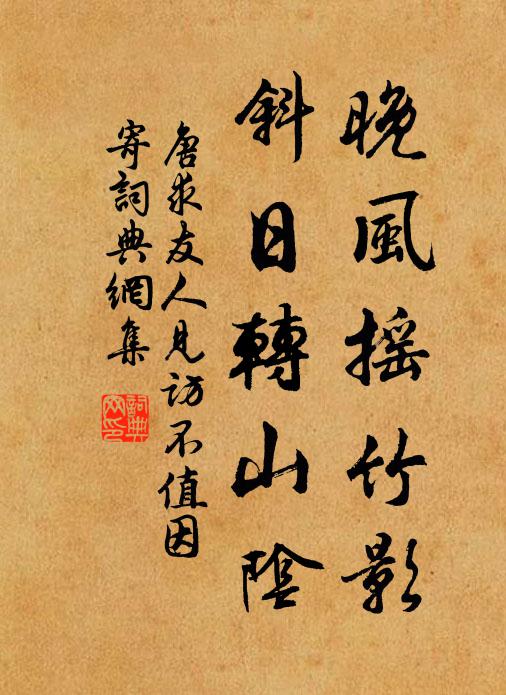 晚風摇竹影
斜日轉山陰
唐求友人見訪不值因
寄詞典網集
詞典
网印